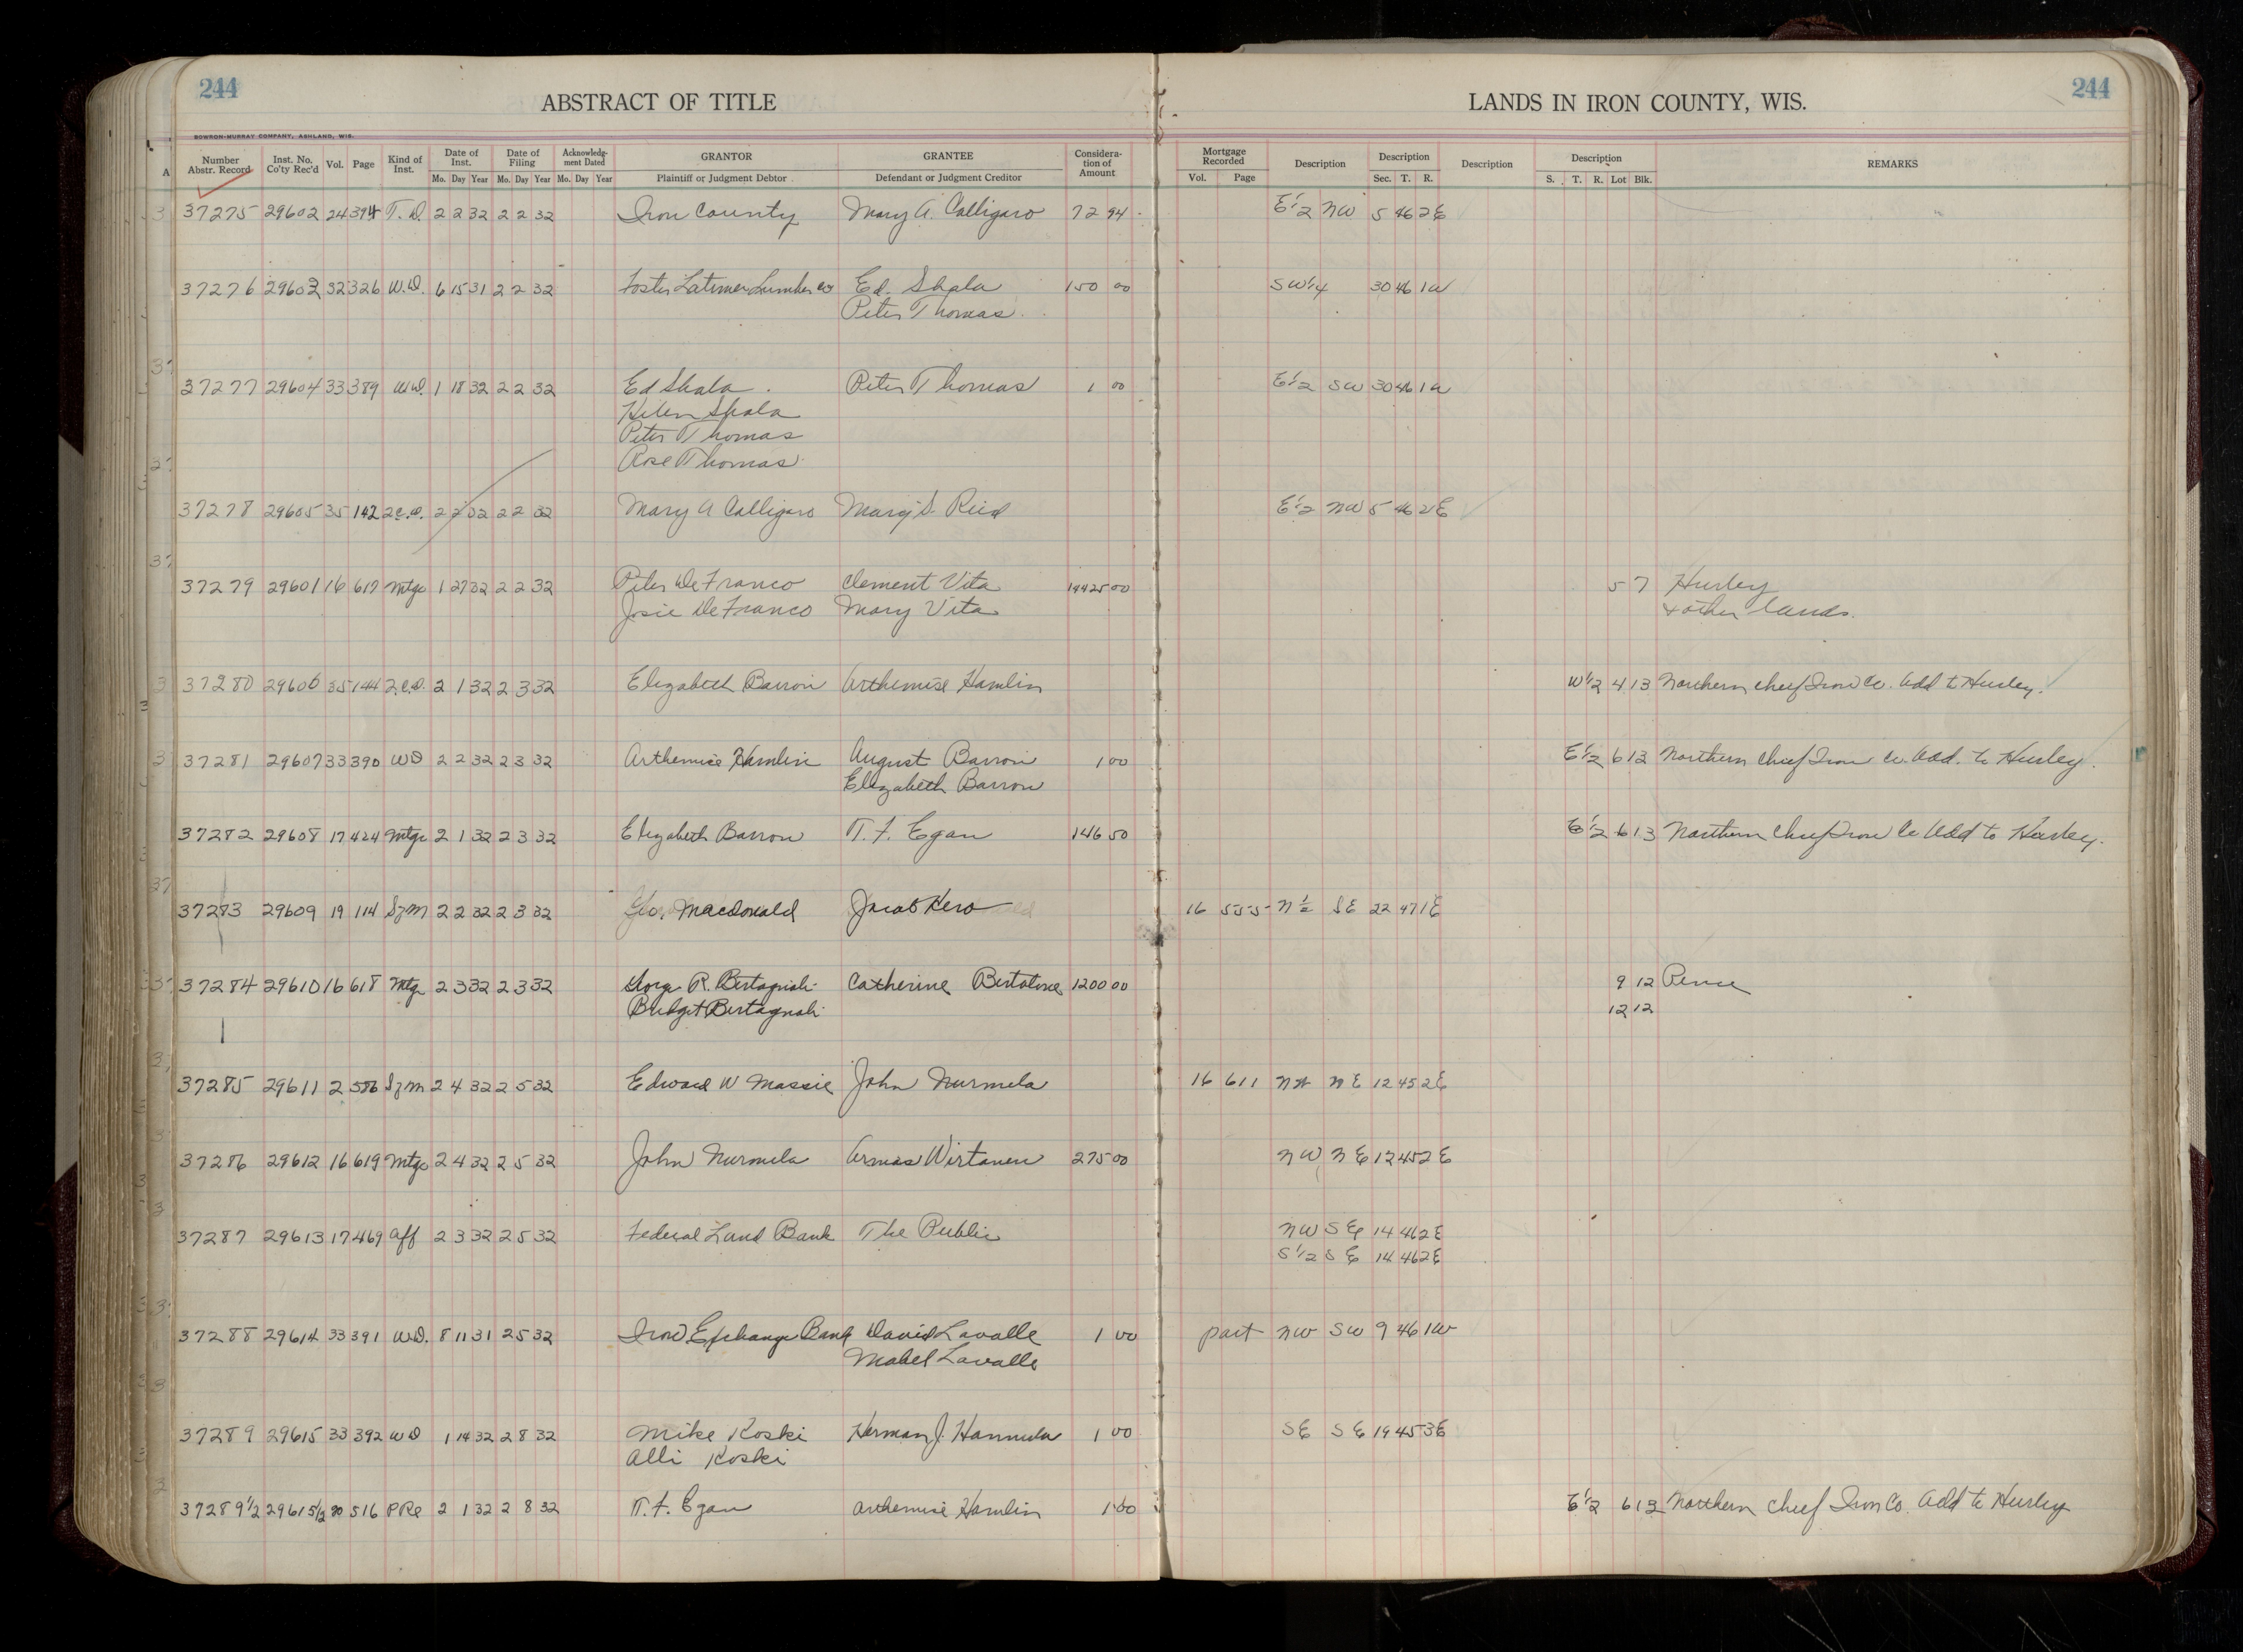 244
ABSTRACT OF TITLE
LANDS IN IRON COUNTY, WIS.
244
BOWRON-MURRAY COMPANY, ASHLAND, WIS.
Number Abstr. Record Inst. No. Co'ty Rec'd Vol. Page Kind of Inst. Date of Inst. Mo. Day Year Date of Filing Mo. Day Year Acknowledg-ment Dated Mo. Day Year GRANTOR Plaintiff or Judgment Debtor GRANTEE Defendant or Judgment Creditor Considera-tion of Amount Mortgage Recorded Vol. Page Description Description Sec. T. R. Description Description S. T. R. Lot Blk. REMARKS
37275 29602 24 394 T. D. 2 2 32 2 2 32 Iron County Mary A. Calligaro 72 94 E 1/2 NW 5 46 2E
37276 29603 32 326 W.D. 6 15 31 2 2 32 Foster Latimer Lumber Co Ed. Skala 150 00 SW 1/4 30 46 1W
Peter Thomas
37277 29604 33 389 WD. 1 18 32 2 2 32 Ed Skala Peter Thomas 1 00 E 1/2 SW 30 46 1W
Helen Skala
Peter Thomas
Rose Thomas
37278 29605 35 142 2.C.D. 2 2 32 2 2 32 Mary A Calligaro Mary S. Reid E 1/2 NW 5 46 2E
37279 29601 16 617 Mtge 1 27 32 2 2 32 Peter DeFranco Clement Vita 19425 00 5 7 Hurley
Josie DeFranco Mary Vita + other lands.
37280 29606 35 144 2.C.D. 2 1 32 2 3 32 Elizabeth Barron Arthemise Hamlin W 1/2 4 13 Northern Chief Iron Co. Add to Hurley.
37281 29607 33 390 WD 2 2 32 2 3 32 Arthemise Hamlin August Barron 1 00 E 1/2 6 13 Northern Chief Iron Co. Add. to Hurley.
Elizabeth Barron
37282 29608 17 424 Mtge 2 1 32 2 3 32 Elizabeth Barron T. F. Egan 146 50 E 1/2 6 13 Northern Chief Iron Co Add to Hurley.
37283 29609 19 114 Szm 2 2 32 2 3 32 Geo. Macdonald Jacob Kero 16 555 N 1/2 SE 22 47 1E
37284 29610 16 618 Mtge 2 3 32 2 3 32 R. Bertagnoli Catherine 1200 00 9 12 Pence
Bertagnoli 12 12
37285 29611 2 586 Szm 2 4 32 2 5 32 Edward W Massie John Nurmela 16 611 NW NE 12 45 2E
37286 29612 16 619 Mtge 2 4 32 2 5 32 John Nurmela Armas Wirtanen 275 00 NW NE 12 45 2E
37287 29613 17 469 Aff 2 3 32 2 5 32 Federal Land Bank The Public NW SE 14 46 2E
S 1/2 SE 14 46 2E
37288 29614 33 391 W.D. 8 11 31 2 5 32 Iron Exchange Bank David Lavalle 1 00 part NW SW 9 46 1W
Mabel Lavalle
37289 29615 33 392 WD 1 14 32 2 8 32 Mike Koski Herman J. Hannula 1 00 SE SE 19 45 3E
Alli Koski
37289 1/2 29615 1/2 20 516 P Re 2 1 32 2 8 32 T. F. Egan Arthemise Hamlin 1 00 E 1/2 6 13 Northern Chief Iron Co. Add to Hurley